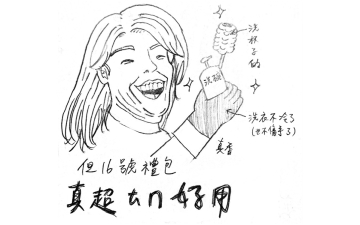 洗杯子的
洗碗
洗衣不冷了
(也不傷手了)
真香
但16號禮包
真超ㄊㄇ好用